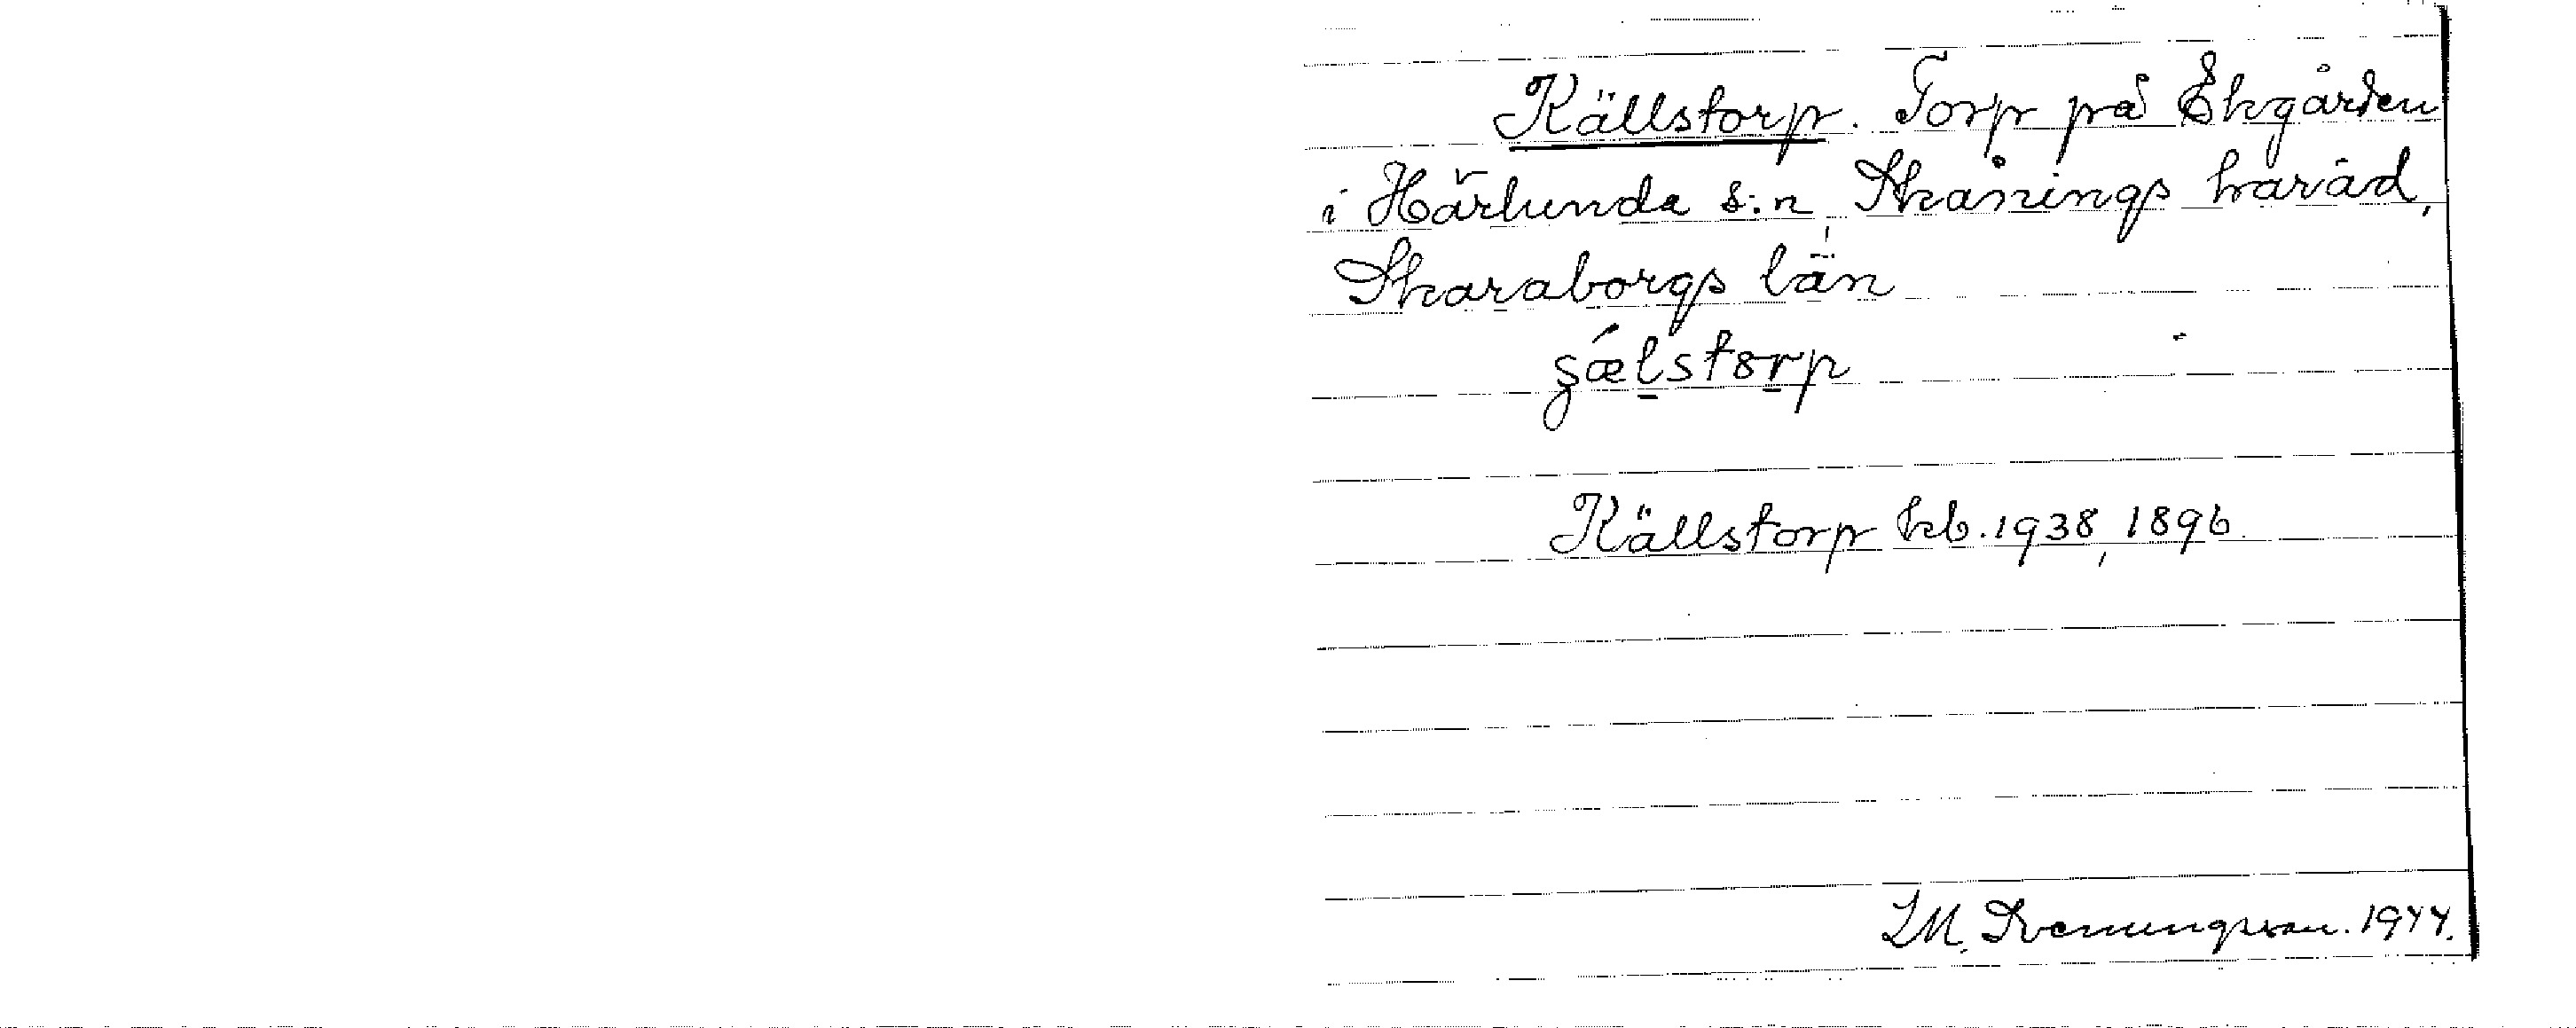 Källstorp. Torp på Ekgården
i Härlunda s:n, Skånings härad,
Skaraborgs län
Källstorp kb. 1938, 1896.
1944.